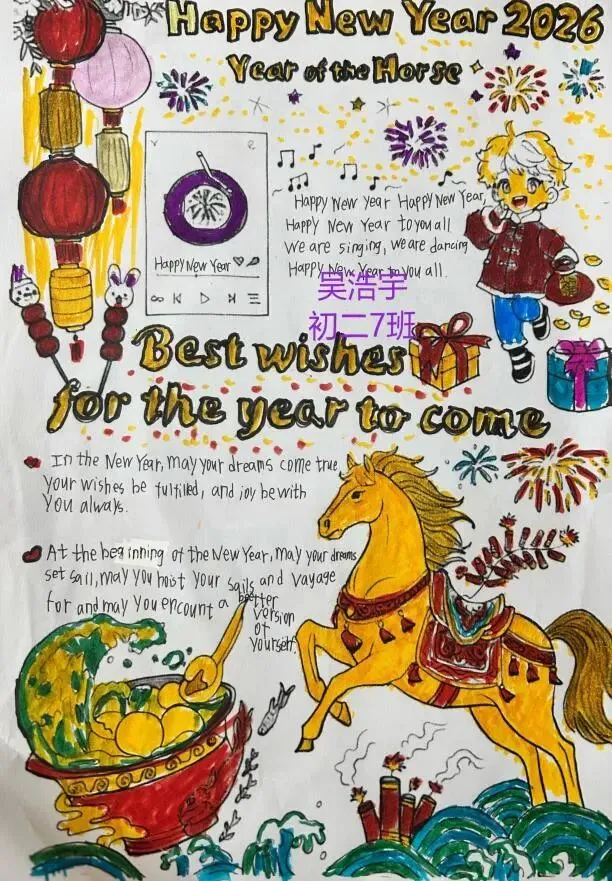 Happy New Year 2026
Year of the Horse
Happy New Year
Happy New Year Happy New Year,
Happy New Year to you all
We are singing, we are dancing
Happy New Year to you all.
吴浩宇
初二7班
Best wishes
for the year to come
In the New Year, may your dreams come true,
your wishes be fulfilled, and joy be with
you always.
At the beginning of the New Year, may your dreams
set sail, may you hoist your sails and vayage
for and may you encount a better
version
of
yourself.